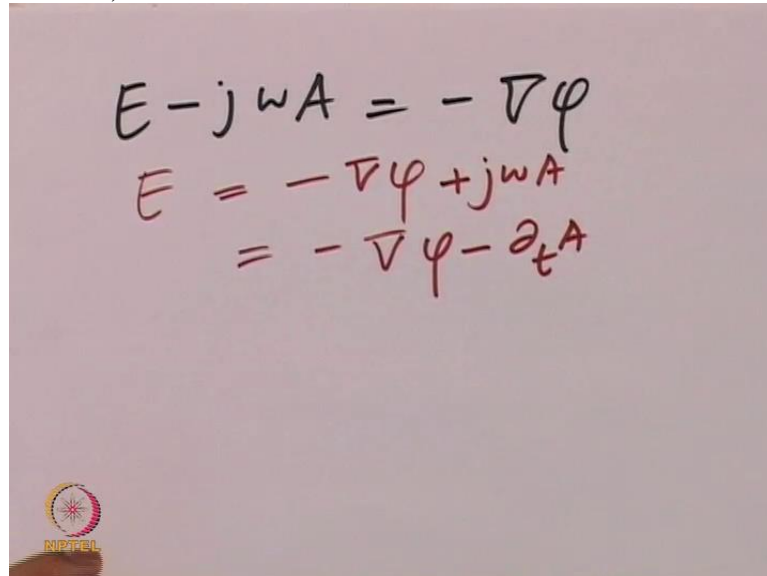 E - jωA = - ∇φ
E = - ∇φ + jωA
= - ∇φ - ∂ₜA
NPTEL